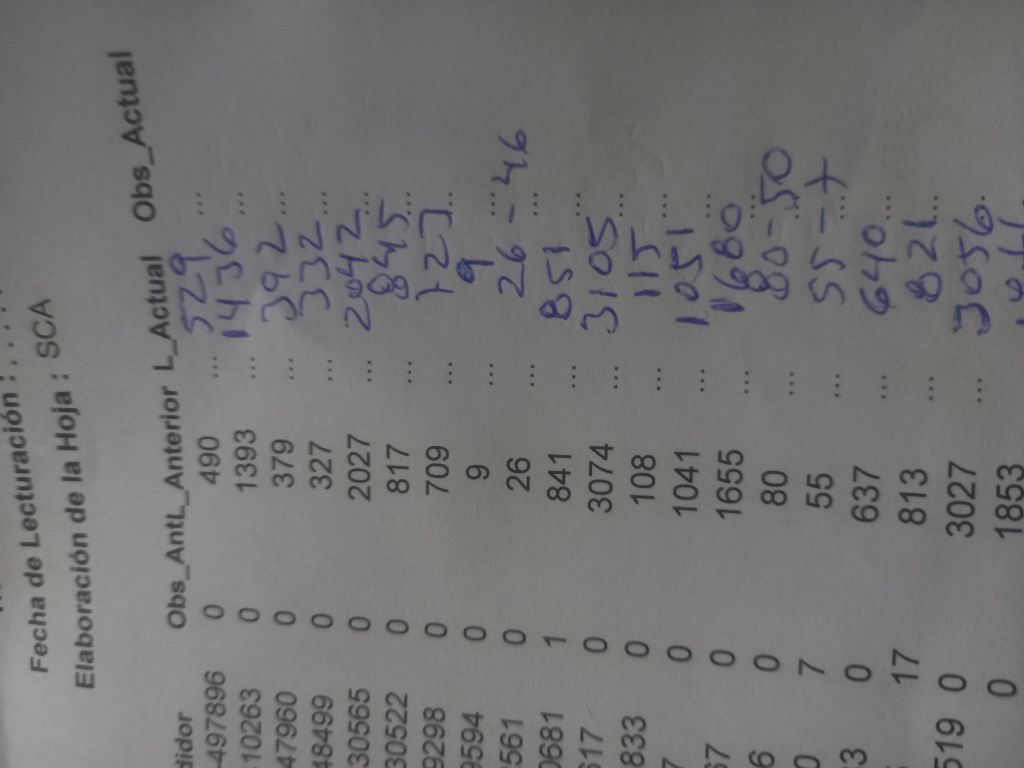 Fecha de Lecturación : . . . .
Elaboración de la Hoja : SCA
didor Obs_Ant L_Anterior L_Actual Obs_Actual
497896 0 490 ... 529 ...
10263 0 1393 ... 1436 ...
47960 0 379 ... 392 ...
48499 0 327 ... 332 ...
30565 0 2027 ... 2042 ...
30522 0 817 ... 845 ...
9298 0 709 ... 723 ...
9594 0 9 ... 9
561 0 26 ... 26 - 46 ...
0681 1 841 ... 851 ...
617 0 3074 ... 3105 ...
833 0 108 ... 115 ...
7 0 1041 ... 1051 ...
67 0 1655 ... 1680 ...
6 0 80 ... 80 - 50 ...
0 7 55 ... 55 - 7 ...
3 0 637 ... 640 ...
17 813 ... 821 ...
519 0 3027 ... 3056 ...
0 1853